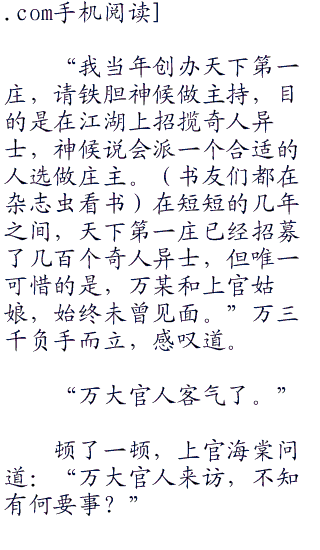 .com手机阅读]
“我当年创办天下第一
庄，请铁胆神候做主持，目
的是在江湖上招揽奇人异
士，神候说会派一个合适的
人选做庄主。（书友们都在
杂志虫看书）在短短的几年
之间，天下第一庄已经招募
了几百个奇人异士，但唯一
可惜的是，万某和上官姑
娘，始终未曾见面。”万三
千负手而立，感叹道。
“万大官人客气了。”
顿了一顿，上官海棠问
道：“万大官人来访，不知
有何要事？”